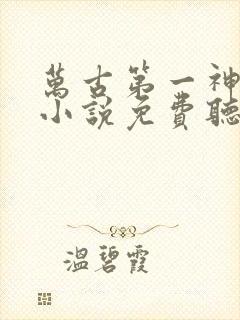 萬古第一神
小說免費聽
溫碧霞